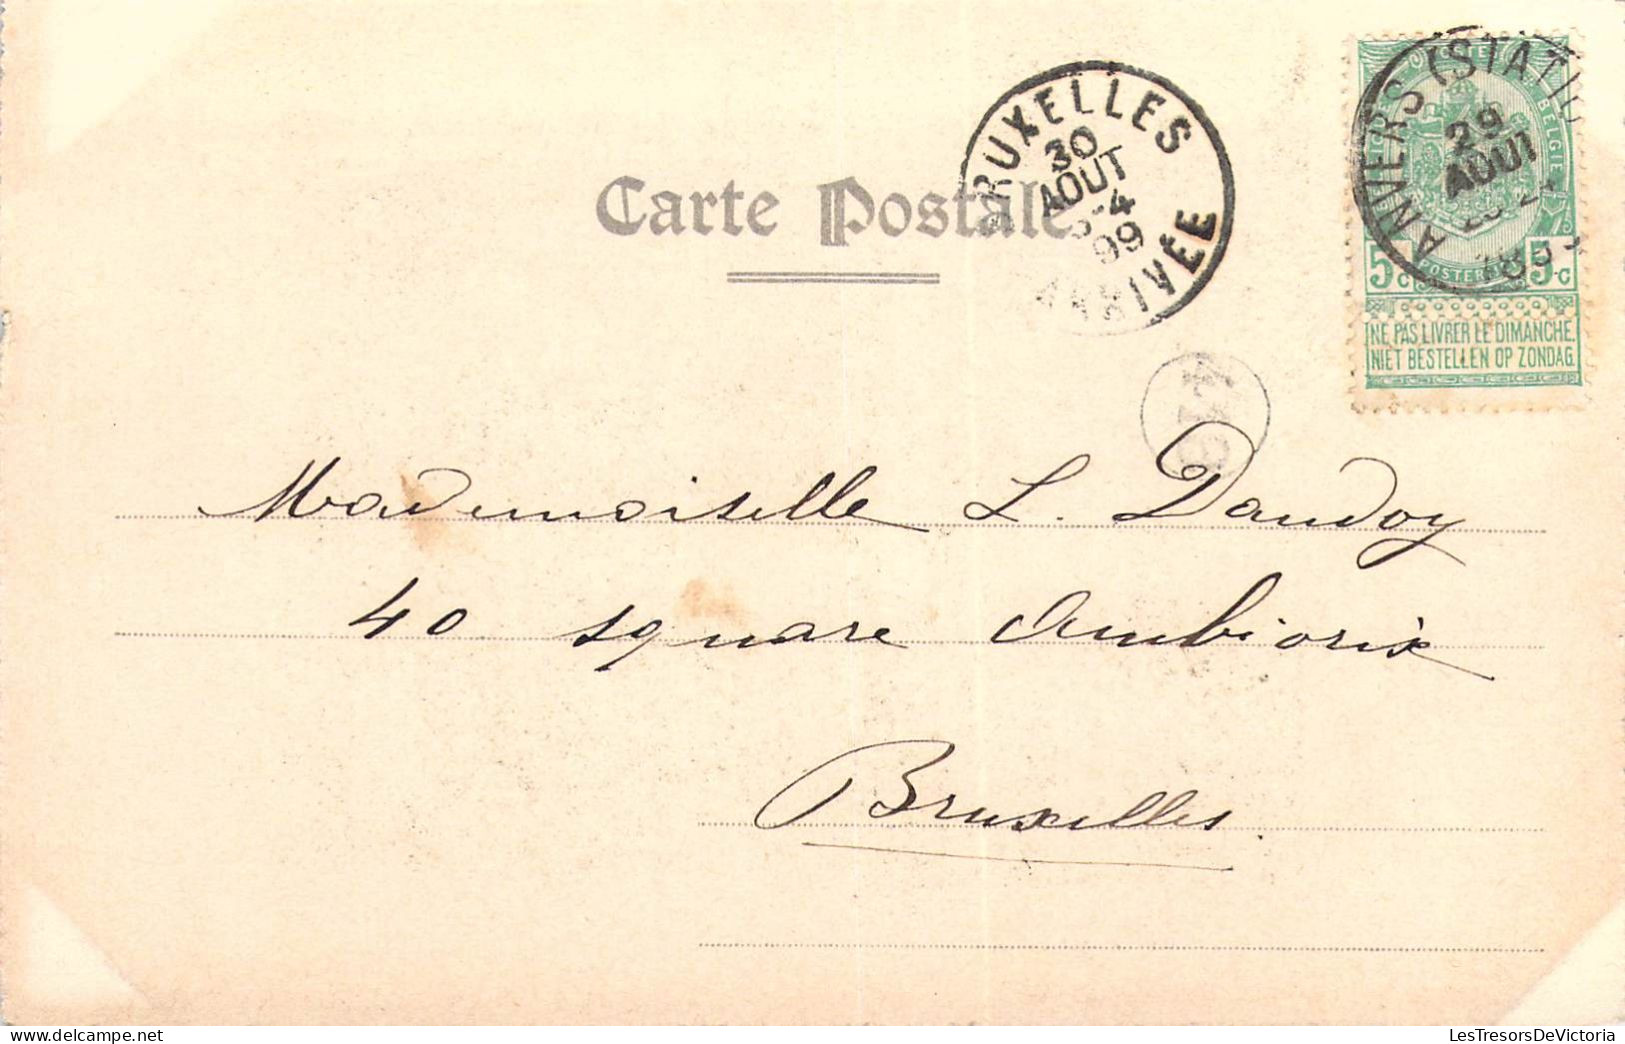 Carte Postale
BRUXELLES
30
AOUT
-4
99
ARRIVÉE
ANVERS (STATIO
29
AOUT
POSTES
BELGIE
5 c
5 c
NE PAS LIVRER LE DIMANCHE
NIET BESTELLEN OP ZONDAG
Mademoiselle L. Dandoy
40 square Ambiorix
Bruxelles.
LesTresorsDeVictoria